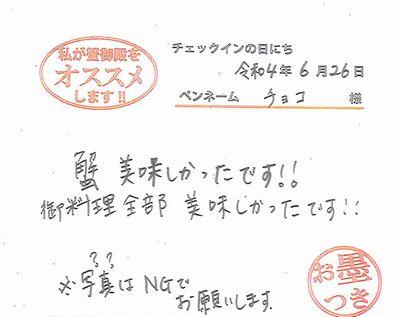 私が蟹御殿を
オススメ
します!!
チェックインの日にち
令和4年6月26日
ペンネーム チョコ 様
蟹 美味しかったです!!
御料理 全部 美味しかったです!!
??
※写真はNGで
お願いします
お墨
つき